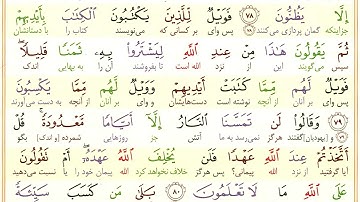 إِلَّا يَظُنُّونَ ٧٨ فَوَيْلٌ لِّلَّذِينَ يَكْتُبُونَ الْكِتَٰبَ بِأَيْدِيهِمْ
جزاینکه گمان پردازی می کنند ٧٨ پس وای بر کسانی که می‌نویسند کتاب را با دستانشان
ثُمَّ يَقُولُونَ هَٰذَا مِنْ عِندِ اللَّهِ لِيَشْتَرُوا بِهِۦ ثَمَنًا قَلِيلًا
سپس می گویند این از نزد الله است تا بفروشند آن را به بهایی اندک
فَوَيْلٌ لَّهُم مِّمَّا كَتَبَتْ أَيْدِيهِمْ وَوَيْلٌ لَّهُم مِّمَّا يَكْسِبُونَ
پس وای بر آنان از آنچه نوشته است دست‌هایشان و وای بر آنان از آنچه به دست می‌آورند
٧٩ وَقَالُوا لَن تَمَسَّنَا النَّارُ إِلَّآ أَيَّامًا مَّعْدُودَةً قُلْ
٧٩ و [یهودیان] گفتند هرگز نمی‌رسد به ما آتش جز روزهایی شمرده [و اندک] بگو
أَتَّخَذْتُمْ عِندَ اللَّهِ عَهْدًا فَلَن يُخْلِفَ اللَّهُ عَهْدَهُۥٓ أَمْ تَقُولُونَ
آیا گرفته‌اید از نزد الله پیمانی؟ پس هرگز خلاف نخواهد کرد الله پیمان خود را یا می‌گویید
عَلَى اللَّهِ مَا لَا تَعْلَمُونَ ٨٠ بَلَىٰ مَن كَسَبَ سَيِّئَةً